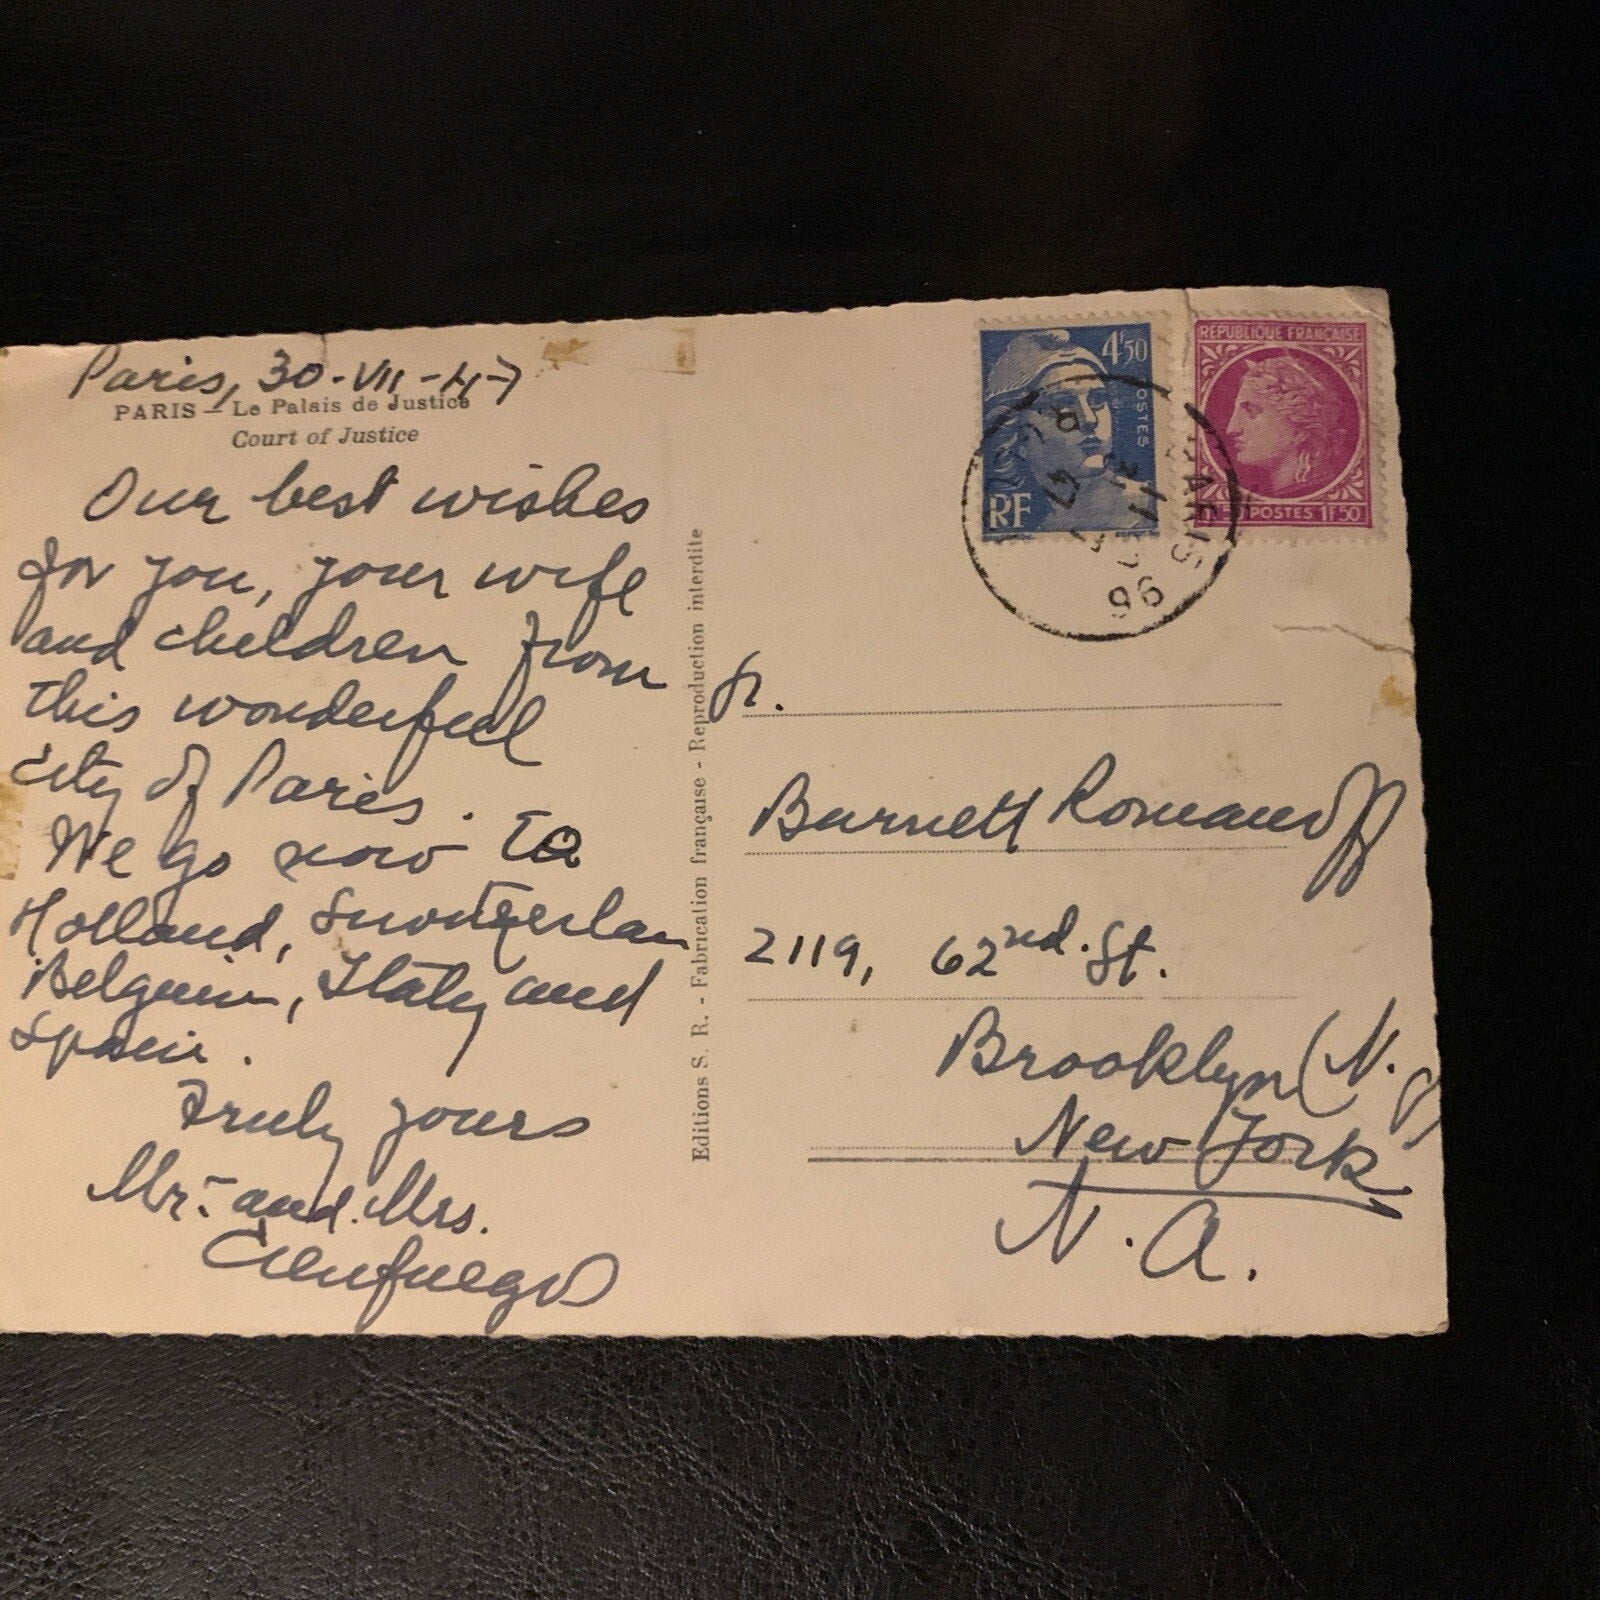 Paris, 30-VII-47
PARIS – Le Palais de Justice
Court of Justice
Our best wishes
for you, your wife
and children from
this wonderful
City of Paris.
We go now to
Holland, Switzerlan
Belguim, Italy and
Spain.
Truly yours
Mr. and Mrs.
Cienfuegos
Editions S. R. - Fabrication française - Reproduction interdite
4F50
POSTES
RF
REPUBLIQUE FRANÇAISE
1F50 POSTES 1F50
PARIS
96
47
Sr.
Barnett Romanoff
2119, 62nd. St.
Brooklyn (N.Y)
New York
N. A.